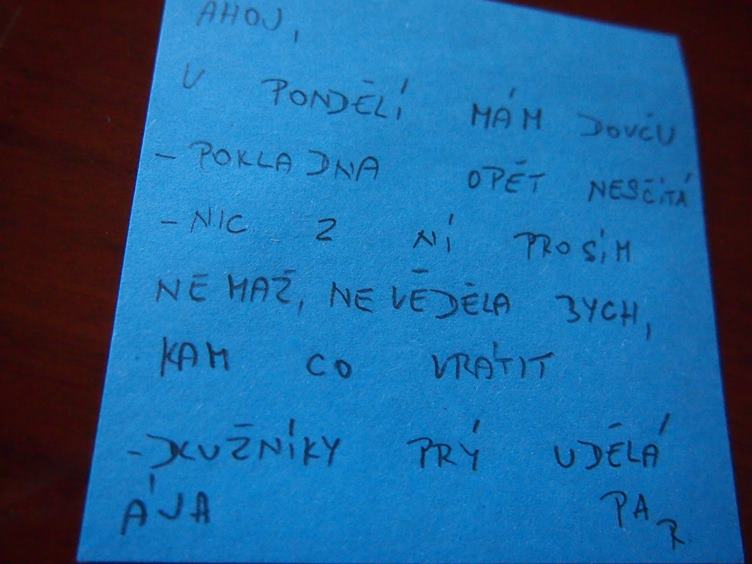 AHOJ,
V PONDĚLÍ MÁM DOVČU
- POKLADNA OPĚT NESČÍTÁ
- NIC Z NÍ PROSÍM
NEMAŽ, NEVĚDĚLA BYCH,
KAM CO VRÁTIT
- DLUŽNÍKY PRÝ UDĚLÁ
ÁJA PAR